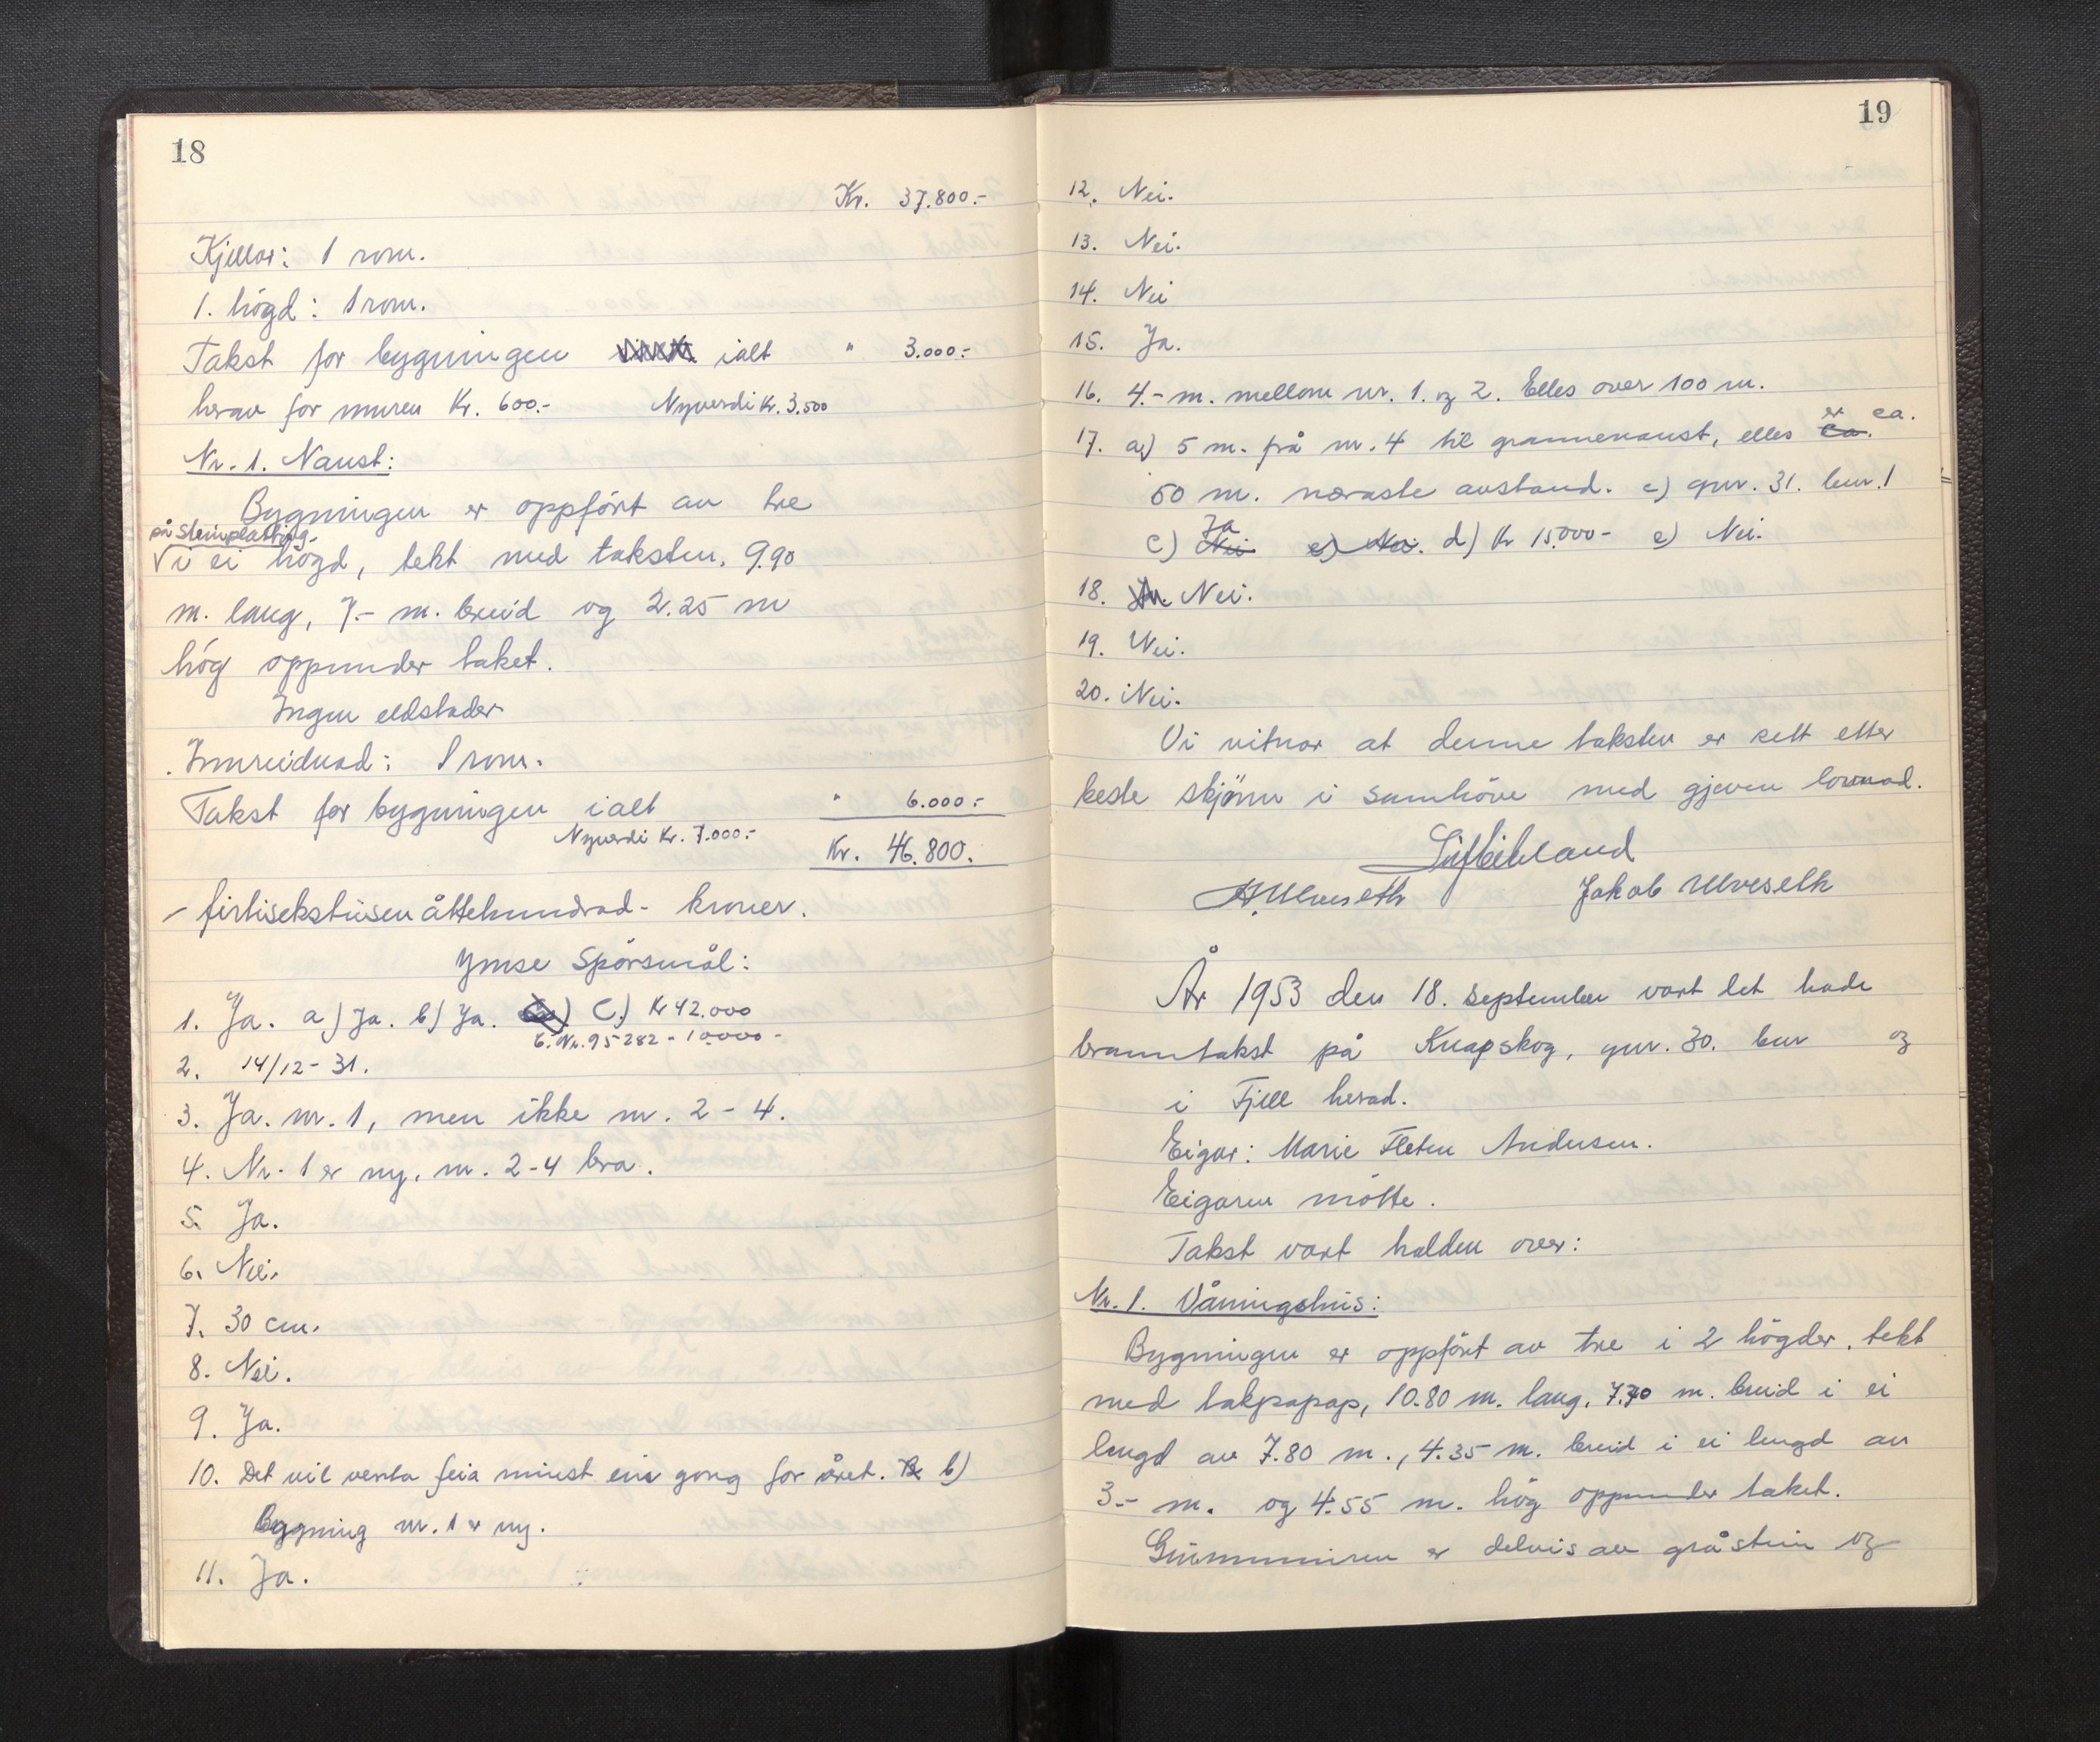 18
Kr. 37.800.-
Kjellar: 1 rom.
1. högd: 1 rom.
Takst for bygningen ialt " 3.000.-
herav for muren Kr. 600.- Nyverdi Kr. 3.500
Nr. 1. Naust:
Bygningen er oppfört av tre
på steinplatting.
i ei högd, tekt med takstein, 9.90
m. lang, 7.- m. breid og 2.25 m
hög oppunder taket.
Ingen eldstader
Innreidnad: 1 rom.
Takst for bygningen ialt " 6.000.-
Nyverdi Kr. 7.000.-
Kr. 46.800.
- firtisekstusen åttehundrad - kroner.
Ymse Spörsmål:
1. Ja. a) Ja. b) Ja. C.) Kr 42.000
Nr. 95282 - 10000 -
2. 14/12 - 31.
3. Ja. nr. 1, men ikke nr. 2 - 4.
4. Nr. 1 er ny. nr. 2-4 bra.
5. Ja.
6. Nei.
7. 30 cm.
8. Nei.
9. Ja.
10. Det vil verta feia minst ein gong for året. b)
Bygning nr. 1 er ny.
11. Ja.
19
12. Nei.
13. Nei.
14. Nei
15. Ja.
16. 4.- m. mellom nr. 1. og 2. Elles over 100 m.
17. a) 5 m. frå nr. 4 til grannenaust, elles er ca. ca.
50 m. næraste avstand. c) gnr. 31. bnr. 1
c) Nei Ja e) Nei. d) Kr 15.000- e) Nei.
18. Nei.
19. Nei.
20. Nei.
Vi vitnar at denne taksten er sett etter
beste skjönn i samhöve med gjeven lovnad.
A. Ulveseth Jakob Ulveseth
År 1953 den 18. september vart det halde
branntakst på Knapskog, gnr. 30. bnr og
i Fjell herad.
Eigar: Marie Fleten Andersen.
Eigaren mötte.
Takst vart halden over:
Nr. 1. Våningshus:
Bygningen er oppfört av tre i 2 högder. tekt
med takpapap, 10.80 m. lang. 7.70 m. breid i ei
lengd av 7.80 m., 4.35 m. breid i ei lengd av
3.- m. og 4.55 m. hög oppunder taket.
Grunnmuren er delvis av gråstein og